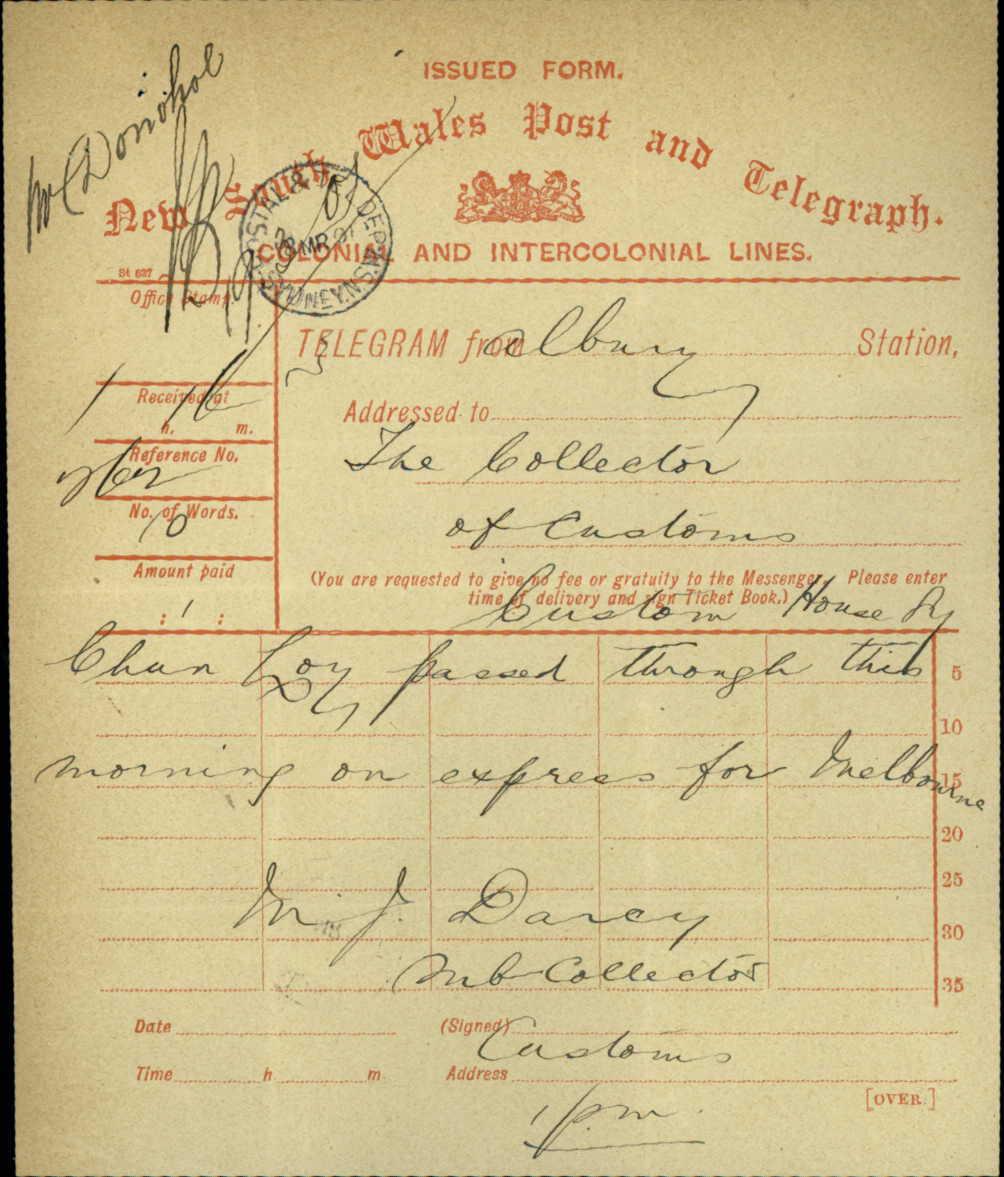 ISSUED FORM.
New South Wales Post and Telegraph.
COLONIAL AND INTERCOLONIAL LINES.
Mr Donohoe
POSTAL & DEPT SYDNEY.N.S.W
28 MR 97
St 627
Office Stamp.
TELEGRAM from Albury Station,
Received at
1 h. 16 m.
Addressed to
Reference No.
The Collector
No. of Words.
10
of Customs
Amount paid
: 1 :
(You are requested to give no fee or gratuity to the Messenger. Please enter
time of delivery and sign Ticket Book.)
Custom House Sy
Chun Loy passed through this 5
10
morning on express for Melbourne 15
20
25
M. J. Darcy
30
Sub Collector
35
Date (Signed)
Customs
Time h m Address
[OVER.]
1 p.m.